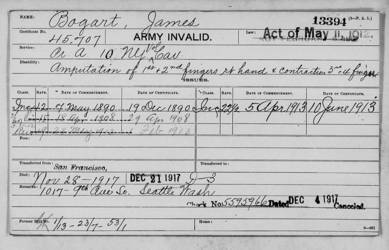 NAME Bogart, James 13394
Certificate No. 45,707 ARMY INVALID. Act of May 11, 1912.
Co A 10 NY Cav
Amputation of 1st & 2nd fingers rt hand & contraction 3rd & 4th finger
ISSUES.
CLASS. RATE. DATE OF COMMENCEMENT. DATE OF CERTIFICATE. CLASS. RATE. DATE OF COMMENCEMENT. DATE OF CERTIFICATE.
Inc 12 7 May 1890 19 Dec 1890 Inc 22 1/2 5 Apr 1913 10 June 1913
15 18 Apr 1908 29 Apr 1908
Transferred from San Francisco,
Died Nov 28-1917 DEC 21 1917 D-3
1017-9th Ave So. Seattle Wash
Check No. 5595966 Dated DEC 4 1917 Canceled.